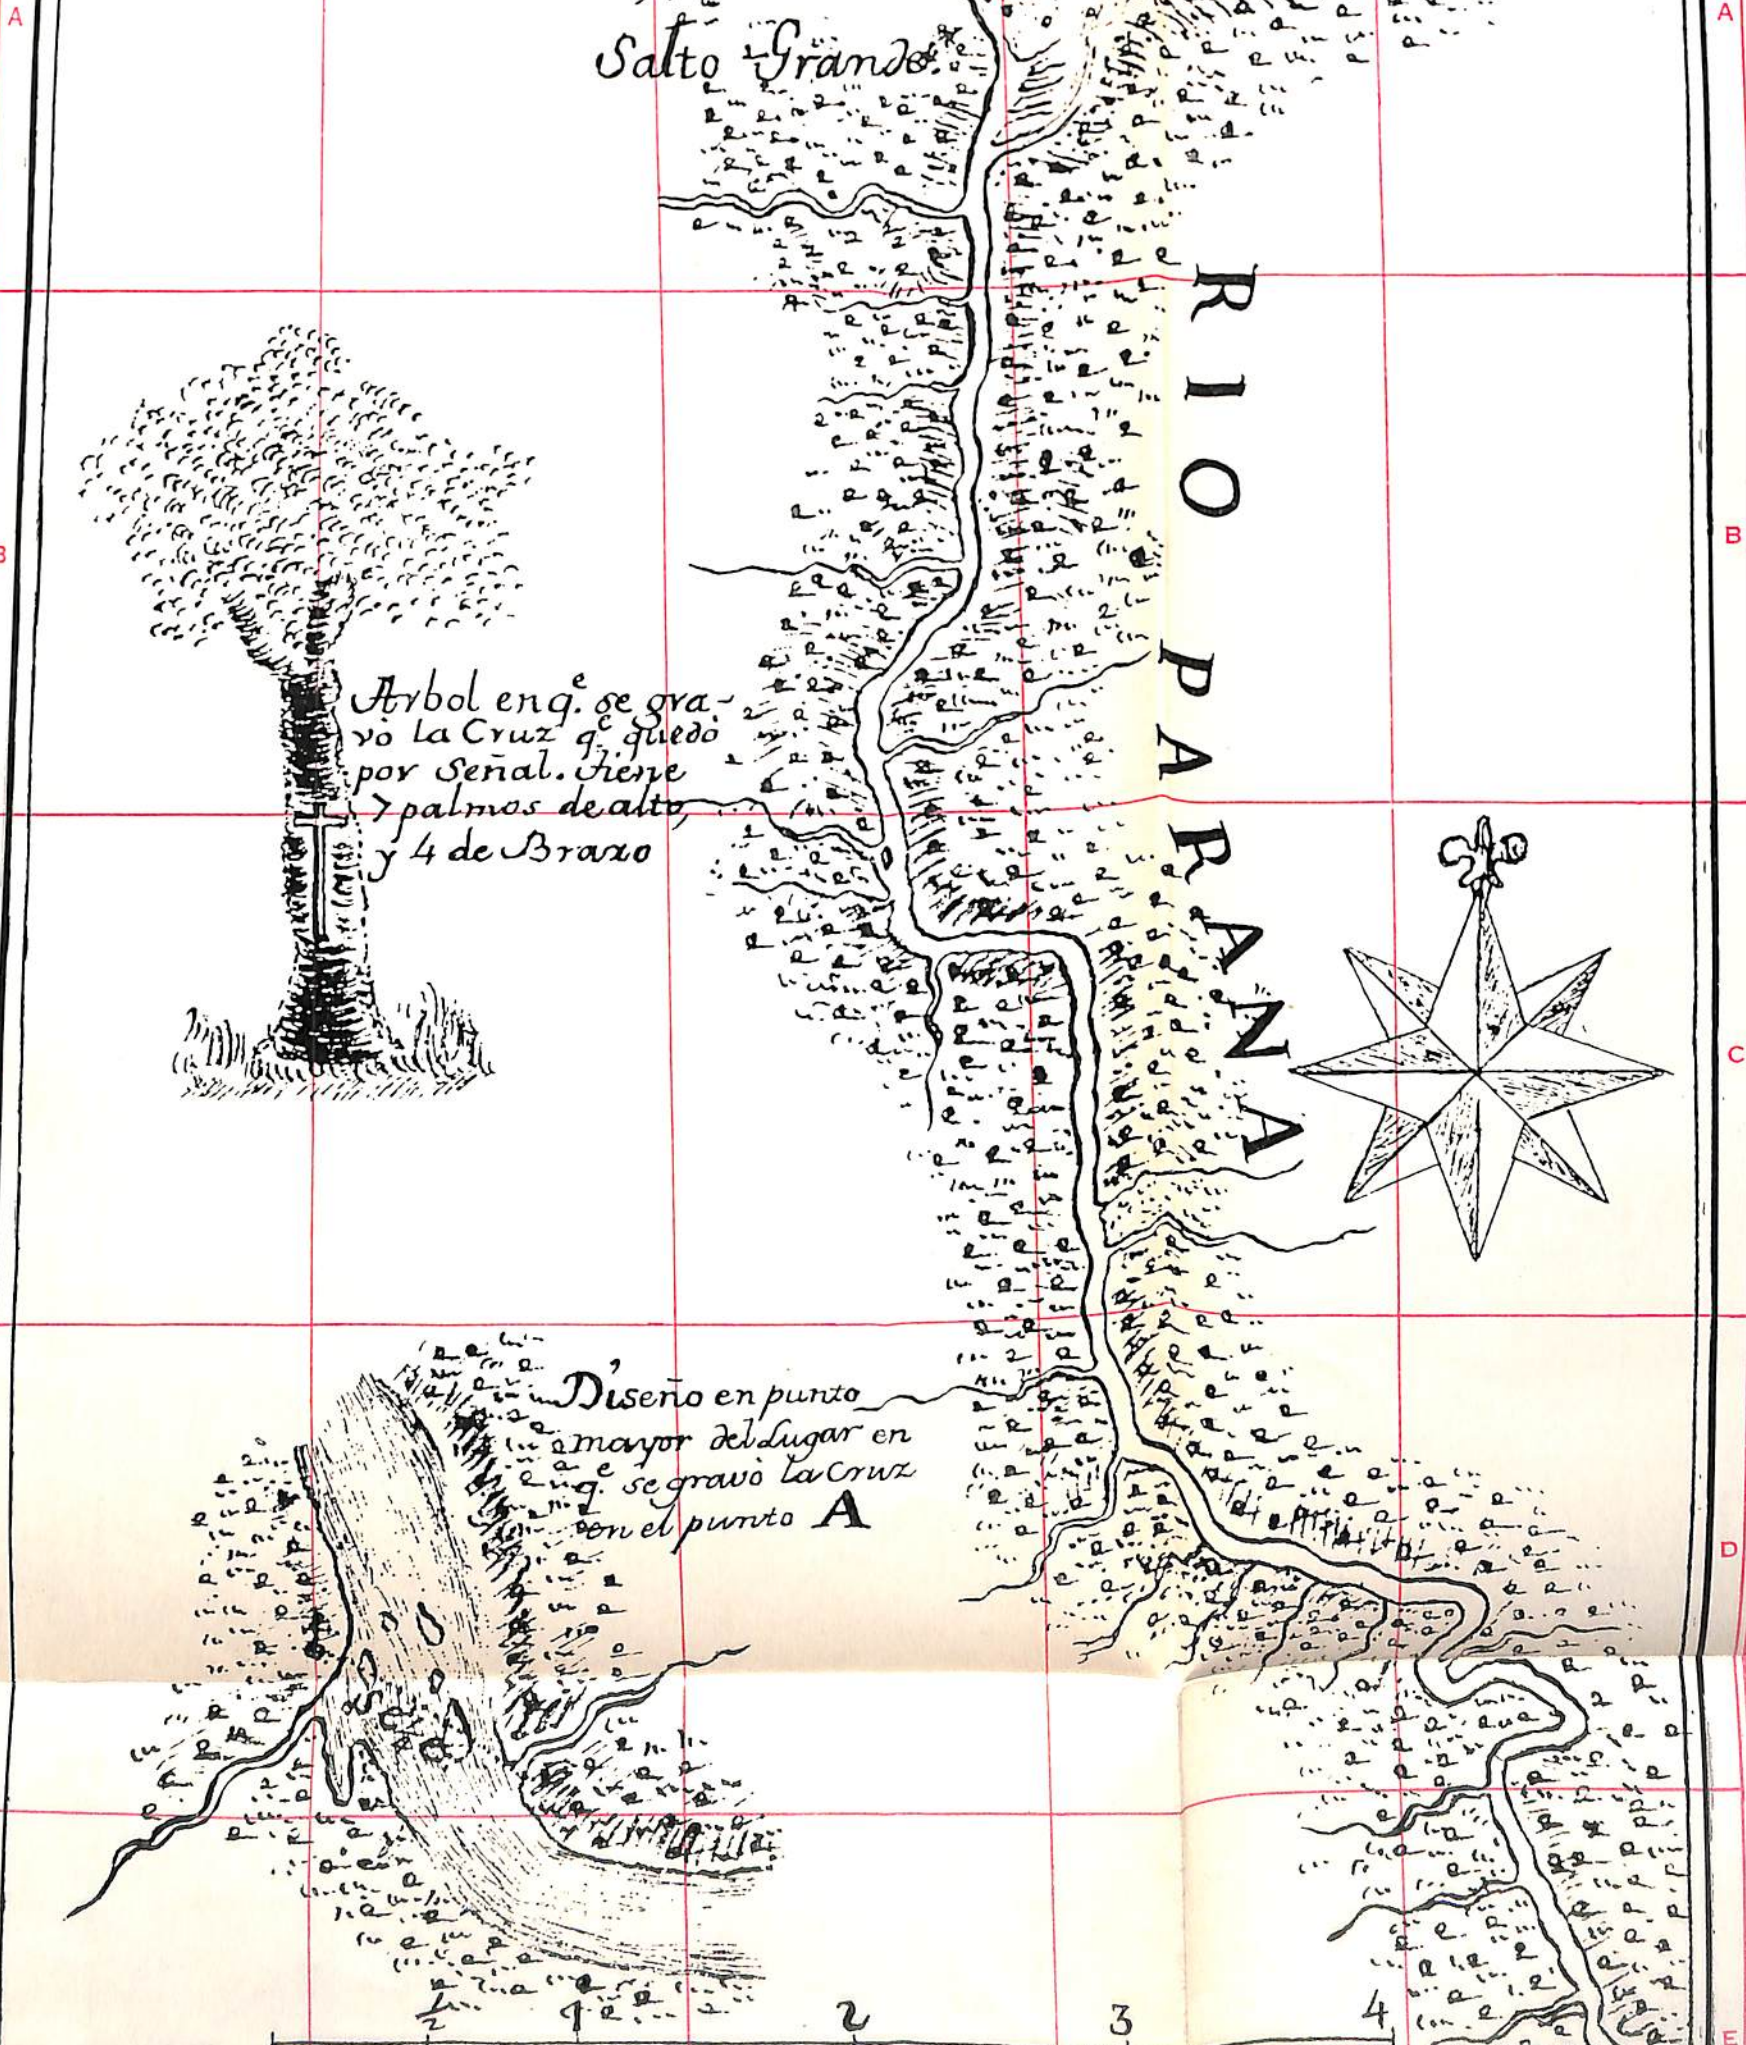 A
A
Salto Grande
RIO PARANA
B
B
Arbol en q.e se gra-
vò la Cruz q.e quedò
por Señal. tiene
7 palmos de alto,
y 4 de Brazo
C
Diseño en punto
mayor del Lugar en
q.e se gravò la Cruz
en el punto A
D
½ 1 2 3 4
E